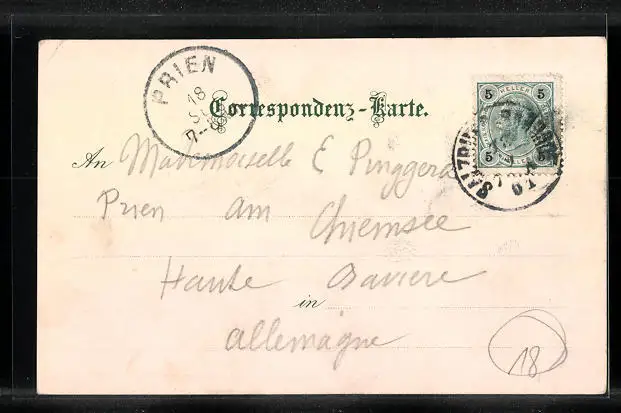 PRIEN
18
Correspondenz-Karte.
5 HELLER 5
5 5
SALZBURG
An Mademoiselle E Pinggera
Prien am Chiemsee
Haute Baviere
in
allemagne
18